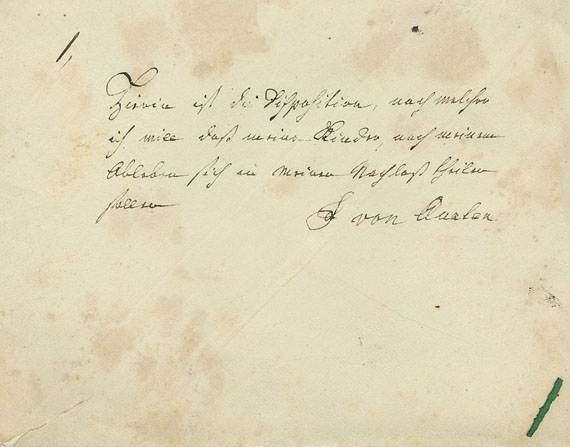 1,
Hierin ist die Disposition, nach welcher
ich will daß meine Kinder, nach meinem
Ableben sich in meinen Nachlaß theilen
sollen
von